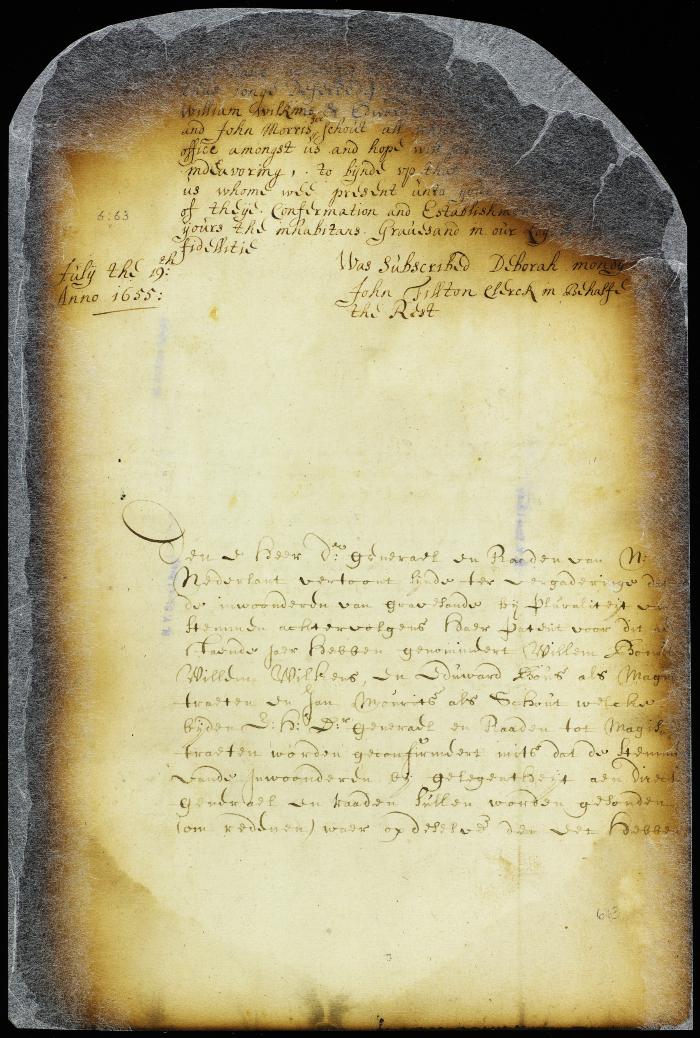 William Wilkins &
and John Morris Schout all
office amongst us and hope
indeavoring, to bijnde vp
us whome wee present unto
of theyr Confermation and Establishm
yours the inhabitans Gravesand in our
fidellitie
6:63
July the 19:th
Anno 1655:
Was Subscribed Deborah mondy
John Tillton Clerck in Behalfe
the Rest
Den E Heer Dr. Generael en Raaden van N:
Nederlant vertoont sijnde ter vergaderinge dat
de inwoonderen van gravesande bij Pluraliteijt
stemmen achtervolgens haer Patent voor dit
staende jaer hebben genomineert Willem
Willem Wilkens, en Eduward als Magi
traeten en Jan Mourits als Schout welcke
bijden E: H: Dr. Generael en Raaden tot Magis
traeten worden geconfirmeert mits dat de stemm
vande Inwoonderen bij gelegentheijt aen Direct
Generael en raaden sullen worden gesonden
(om redenen) waer op deselve den eet hebben
663